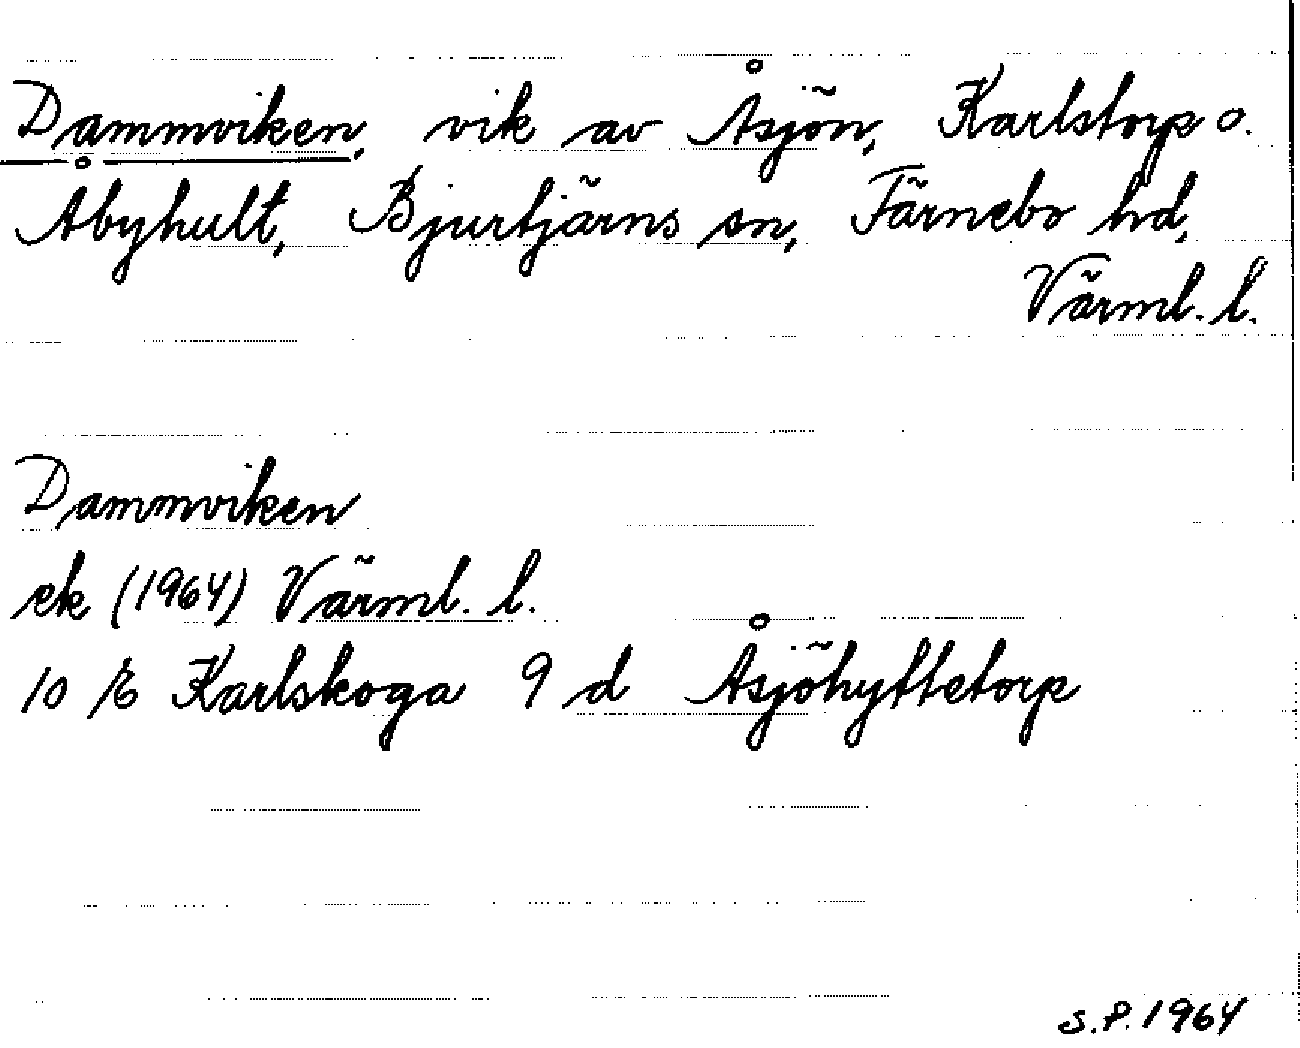 Dammviken, vik av Åsjön, Karlstorp o.
Åbyhult, Bjurtjärns sn, Färnebo hd,
Värml. l.
Dammviken
ek (1964) Värml. l.
10 E Karlskoga 9 d Åsjöhyttetorp
S.P. 1964